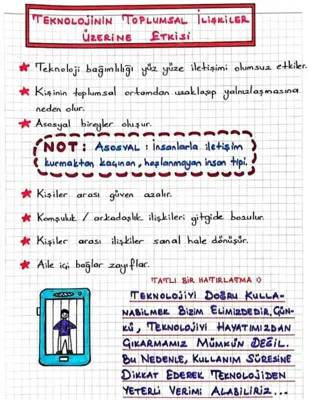 TEKNOLOJİNİN TOPLUMSAL İLİŞKİLER
ÜZERİNE ETKİSİ
★ Teknoloji bağımlılığı yüz yüze iletişimi olumsuz etkiler.
★ Kişinin toplumsal ortamdan uzaklaşıp yalnızlaşmasına
neden olur.
★ Asosyal bireyler oluşur.
NOT: ASOSYAL: İnsanlarla iletişim
kurmaktan kaçınan, hoşlanmayan insan tipi.
★ Kişiler arası güven azalır.
★ Komşuluk / arkadaşlık ilişkileri gitgide bozulur.
★ Kişiler arası ilişkiler sanal hale dönüşür.
★ Aile içi bağlar zayıflar.
TATLI BİR HATIRLATMA
TEKNOLOJİYİ DOĞRU KULLA-
NABİLMEK BİZİM ELİMİZDEDİR. ÇÜN-
KÜ, TEKNOLOJİYİ HAYATIMIZDAN
ÇIKARMAMIZ MÜMKÜN DEĞİL.
BU NEDENLE, KULLANIM SÜRESİNE
DİKKAT EDEREK TEKNOLOJİDEN
YETERLİ VERİMİ ALABİLİRİZ...